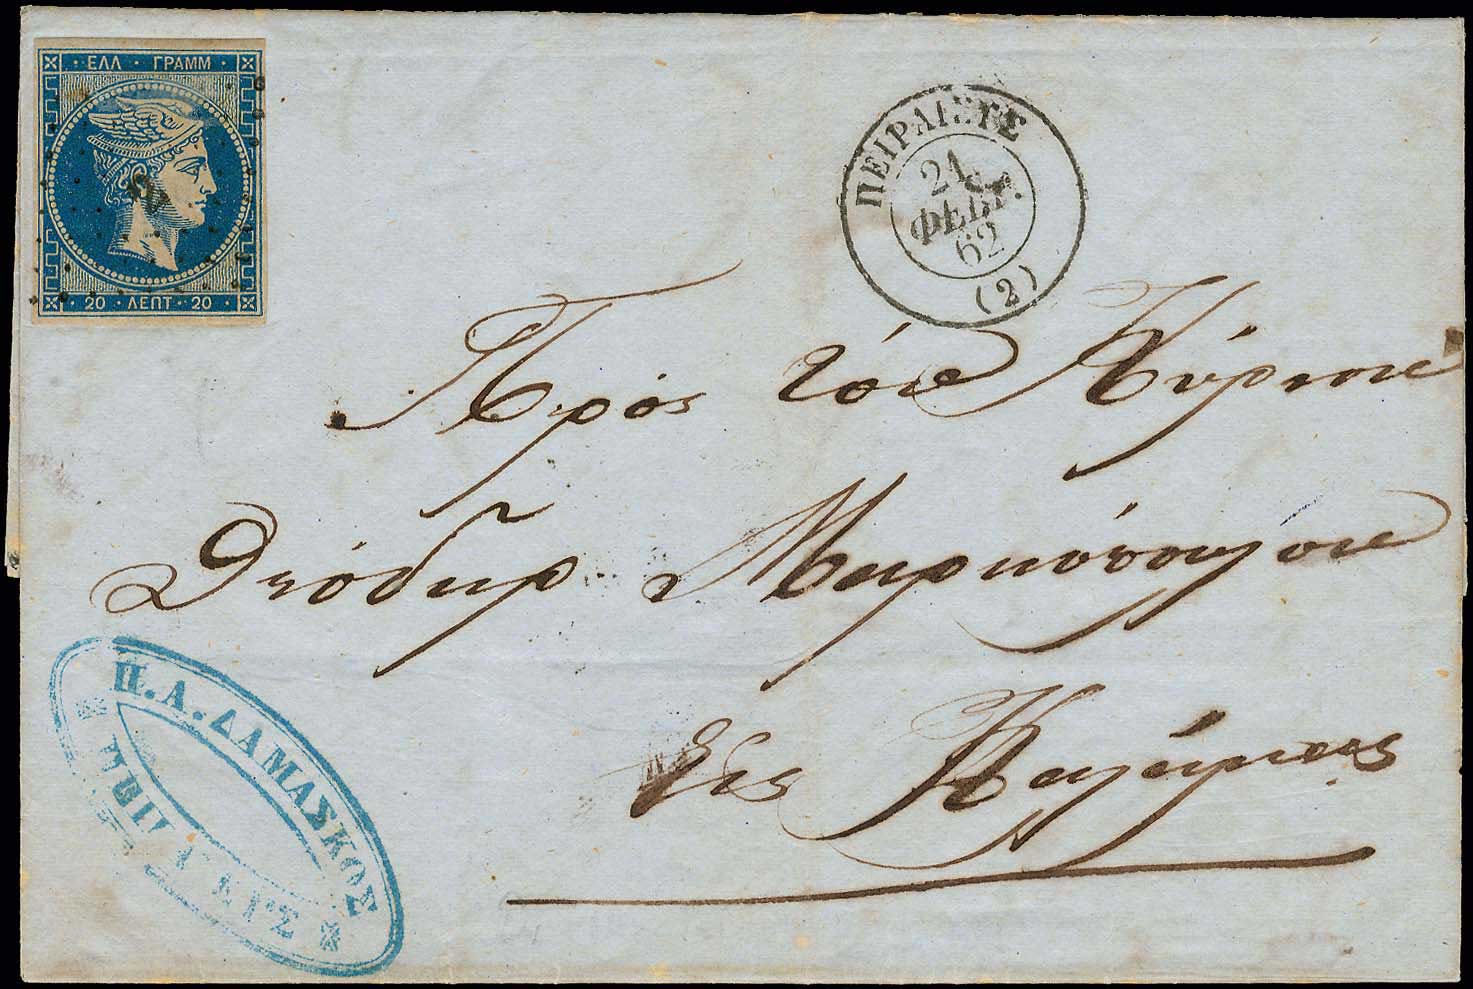 ΕΛΛ · ΓΡΑΜΜ
20 · ΛΕΠΤ · 20
2
ΠΕΙΡΑΙΕΥΣ
21
ΦΕΒΡ.
62
(2)
Πρός τόν Κύριον
Θεόδωρ Μαρκόπουλον
Εἰς Καλάμας
Π. Α. ΔΑΜΑΣΚΟΣ
ΠΕΙΡΑΙΕΥΣ